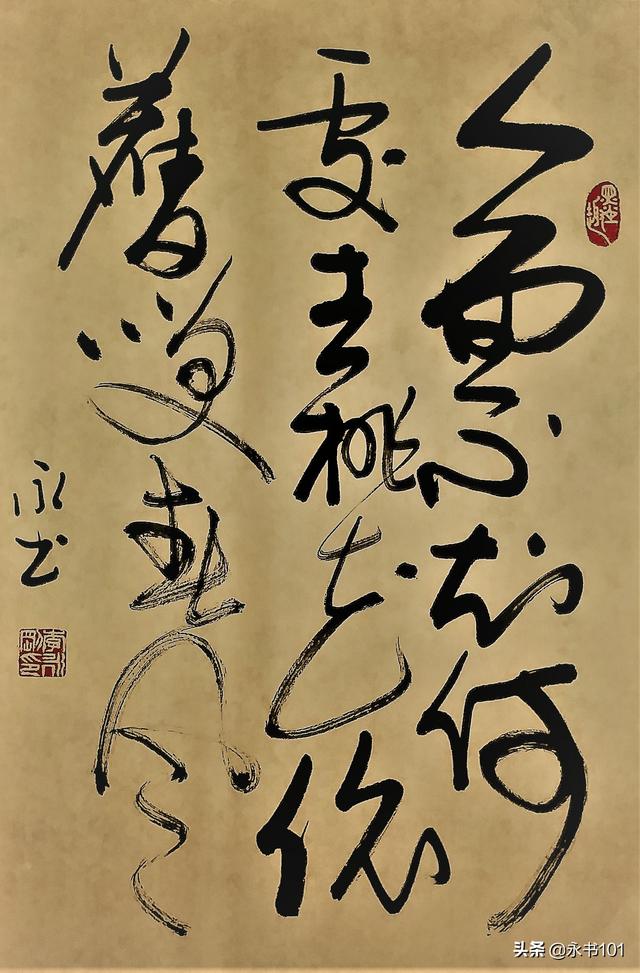 人面不知何
處去桃花依
舊笑春風
永書
头条 @永书101